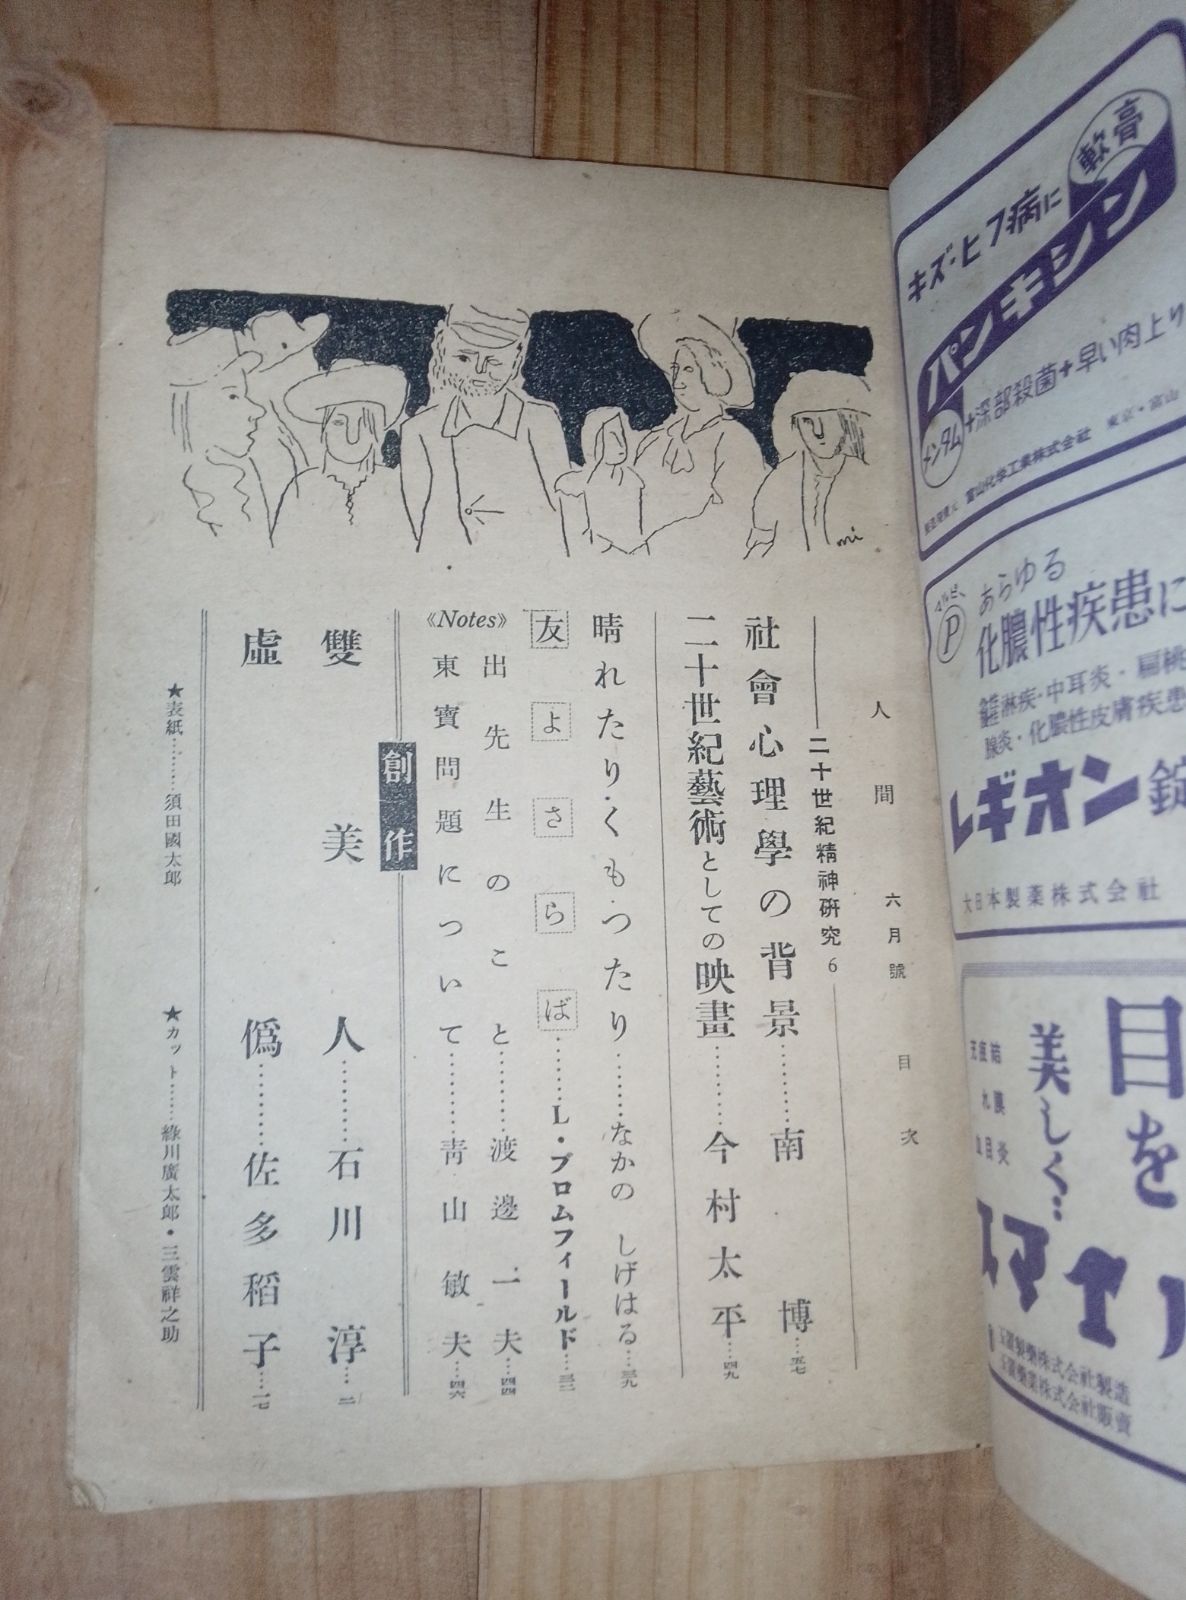 軟膏
キズ・ヒフ病に
パンキシン
メンタム+深部殺菌+早い肉上り
富山化学工業株式会社 東京・富山
あらゆる
P
化膿性疾患に
淋疾・中耳炎・扁桃
腺炎・化膿性皮膚疾患
レギオン錠
大日本製薬株式会社
目を
美しく…
スマイル
製薬株式会社製造
薬業株式会社販賣
人間 六月號 目次
二十世紀精神硏究6
社會心理學の背景………南博…五七
二十世紀藝術としての映畫………今村太平…四九
晴れたり・くもつたり………なかの しげはる…三九
友よさらば………L・ブロムフィールド…三二
《Notes》
出先生のこと………渡邊一夫…四四
東寶問題について………靑山敏夫…四六
創作
雙美人………石川淳…二
虛僞………佐多稻子…一七
★表紙………須田國太郎
★カット……綠川廣太郎・三雲祥之助
mi